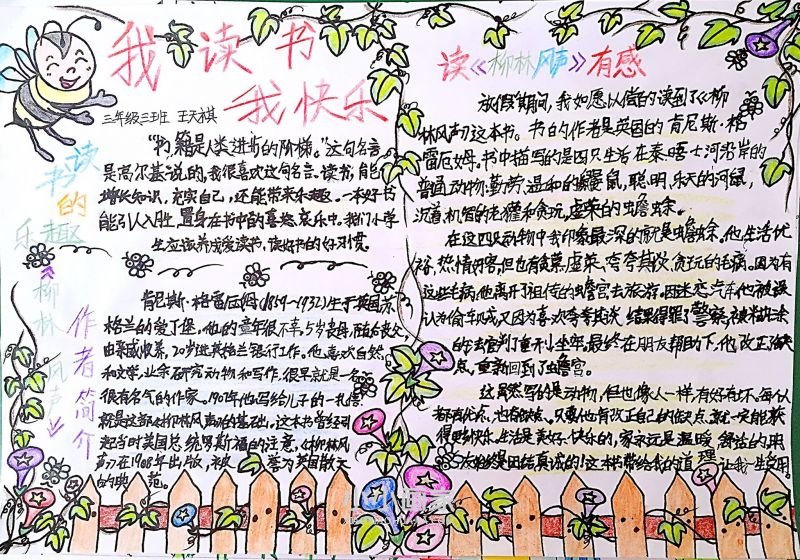 我读书
我快乐
三年级三班 王天祺
读书的乐趣
"书籍是人类进步的阶梯。"这句名言
是高尔基说的,我很喜欢这句名言。读书,能
增长知识,充实自己,还能带来乐趣。一本好书
能引人入胜,置身在书中的喜怒哀乐中。我们小学
生应该养成爱读书,读好书的好习惯。
《柳林风声》
作者简介
肯尼斯·格雷厄姆(1859~1932)生于英国苏
格兰的爱丁堡。他的童年很不幸,5岁丧母,随后丧父,
由亲戚收养,20岁进英格兰银行工作。他喜欢自然
和文学,业余研究动物和写作,很早就是一名
很有名气的作家。1907年他写给儿子的一札信,
就是这部《柳林风声》的基础。这本书曾经引
起当时美国总统罗斯福的注意。《柳林风
声》在1908年出版,被誉为英国散文
的典范。
读《柳林风声》有感
放假期间,我如愿以偿的读到了《柳
林风声》这本书。书的作者是英国的肯尼斯·格
雷厄姆。书中描写的是四只生活在泰晤士河沿岸的
普通动物:勤劳、温和的鼹鼠,聪明、乐天的河鼠,
沉着、机智的老獾和贪玩、虚荣的蟾蜍。
在这四只动物中我印象最深的就是蟾蜍。他生活优
裕,热情好客,但也有贪慕虚荣、夸夸其谈、贪玩的毛病。因为有
这些毛病,他离开了祖传的蟾宫去旅游。因迷恋汽车他被误
认为偷车贼,又因为喜欢夸夸其谈,结果得罪了警察,被
的去管判了重刑,坐牢。最终在朋友帮助下,他改正缺
点,重新回到了蟾宫。
这虽然写的是动物,但也像人一样,有好有坏,每个
都有优点,也有缺点。只要他肯改正自己的缺点,就一定能获
得更多快乐。生活是美好、快乐的,家永远是温暖、舒适的,朋
友始终是团结真诚的!这本书带给我的道理让我一生受用。